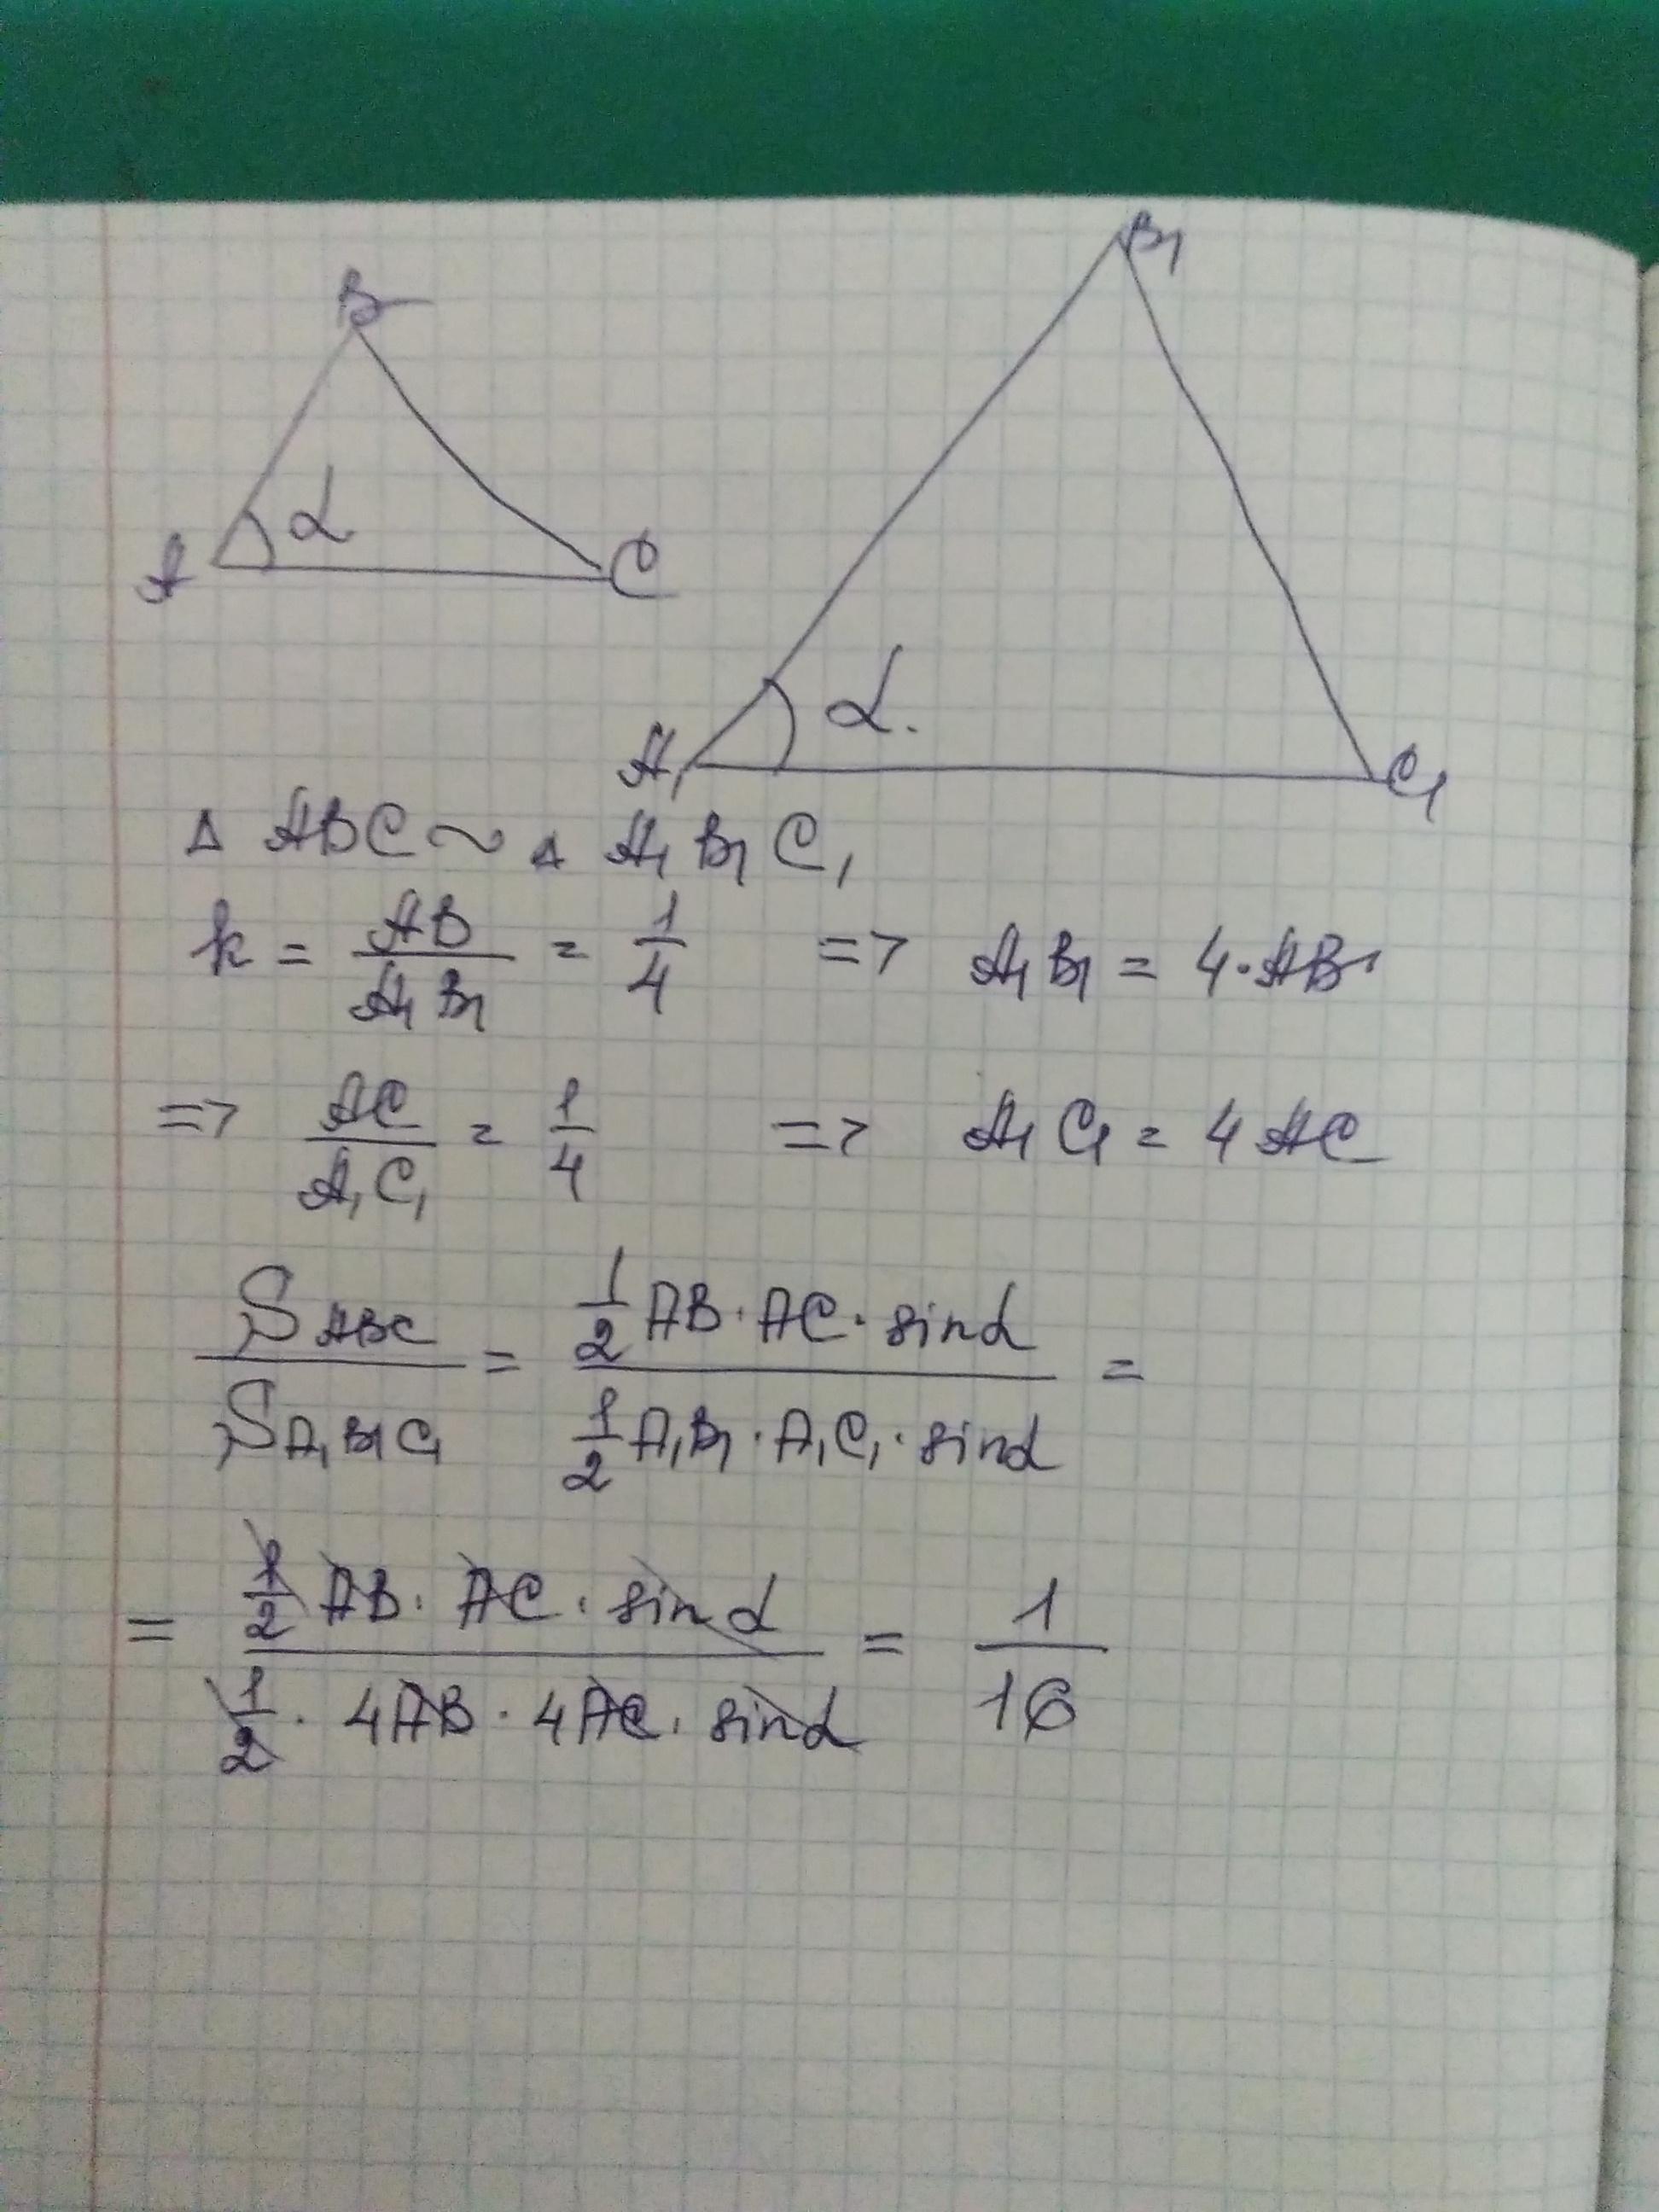 B
B₁
α
A C
α.
A₁ C₁
Δ ABC ~ Δ A₁B₁C₁
k = AB/A₁B₁ = 1/4 => A₁B₁ = 4·AB
=> AC/A₁C₁ = 1/4 => A₁C₁ = 4AC
S ABC / S A₁B₁C₁ = (1/2 AB·AC·sinα) / (1/2 A₁B₁·A₁C₁·sinα) =
= (1/2 AB·AC·sinα) / (1/2·4AB·4AC·sinα) = 1/16